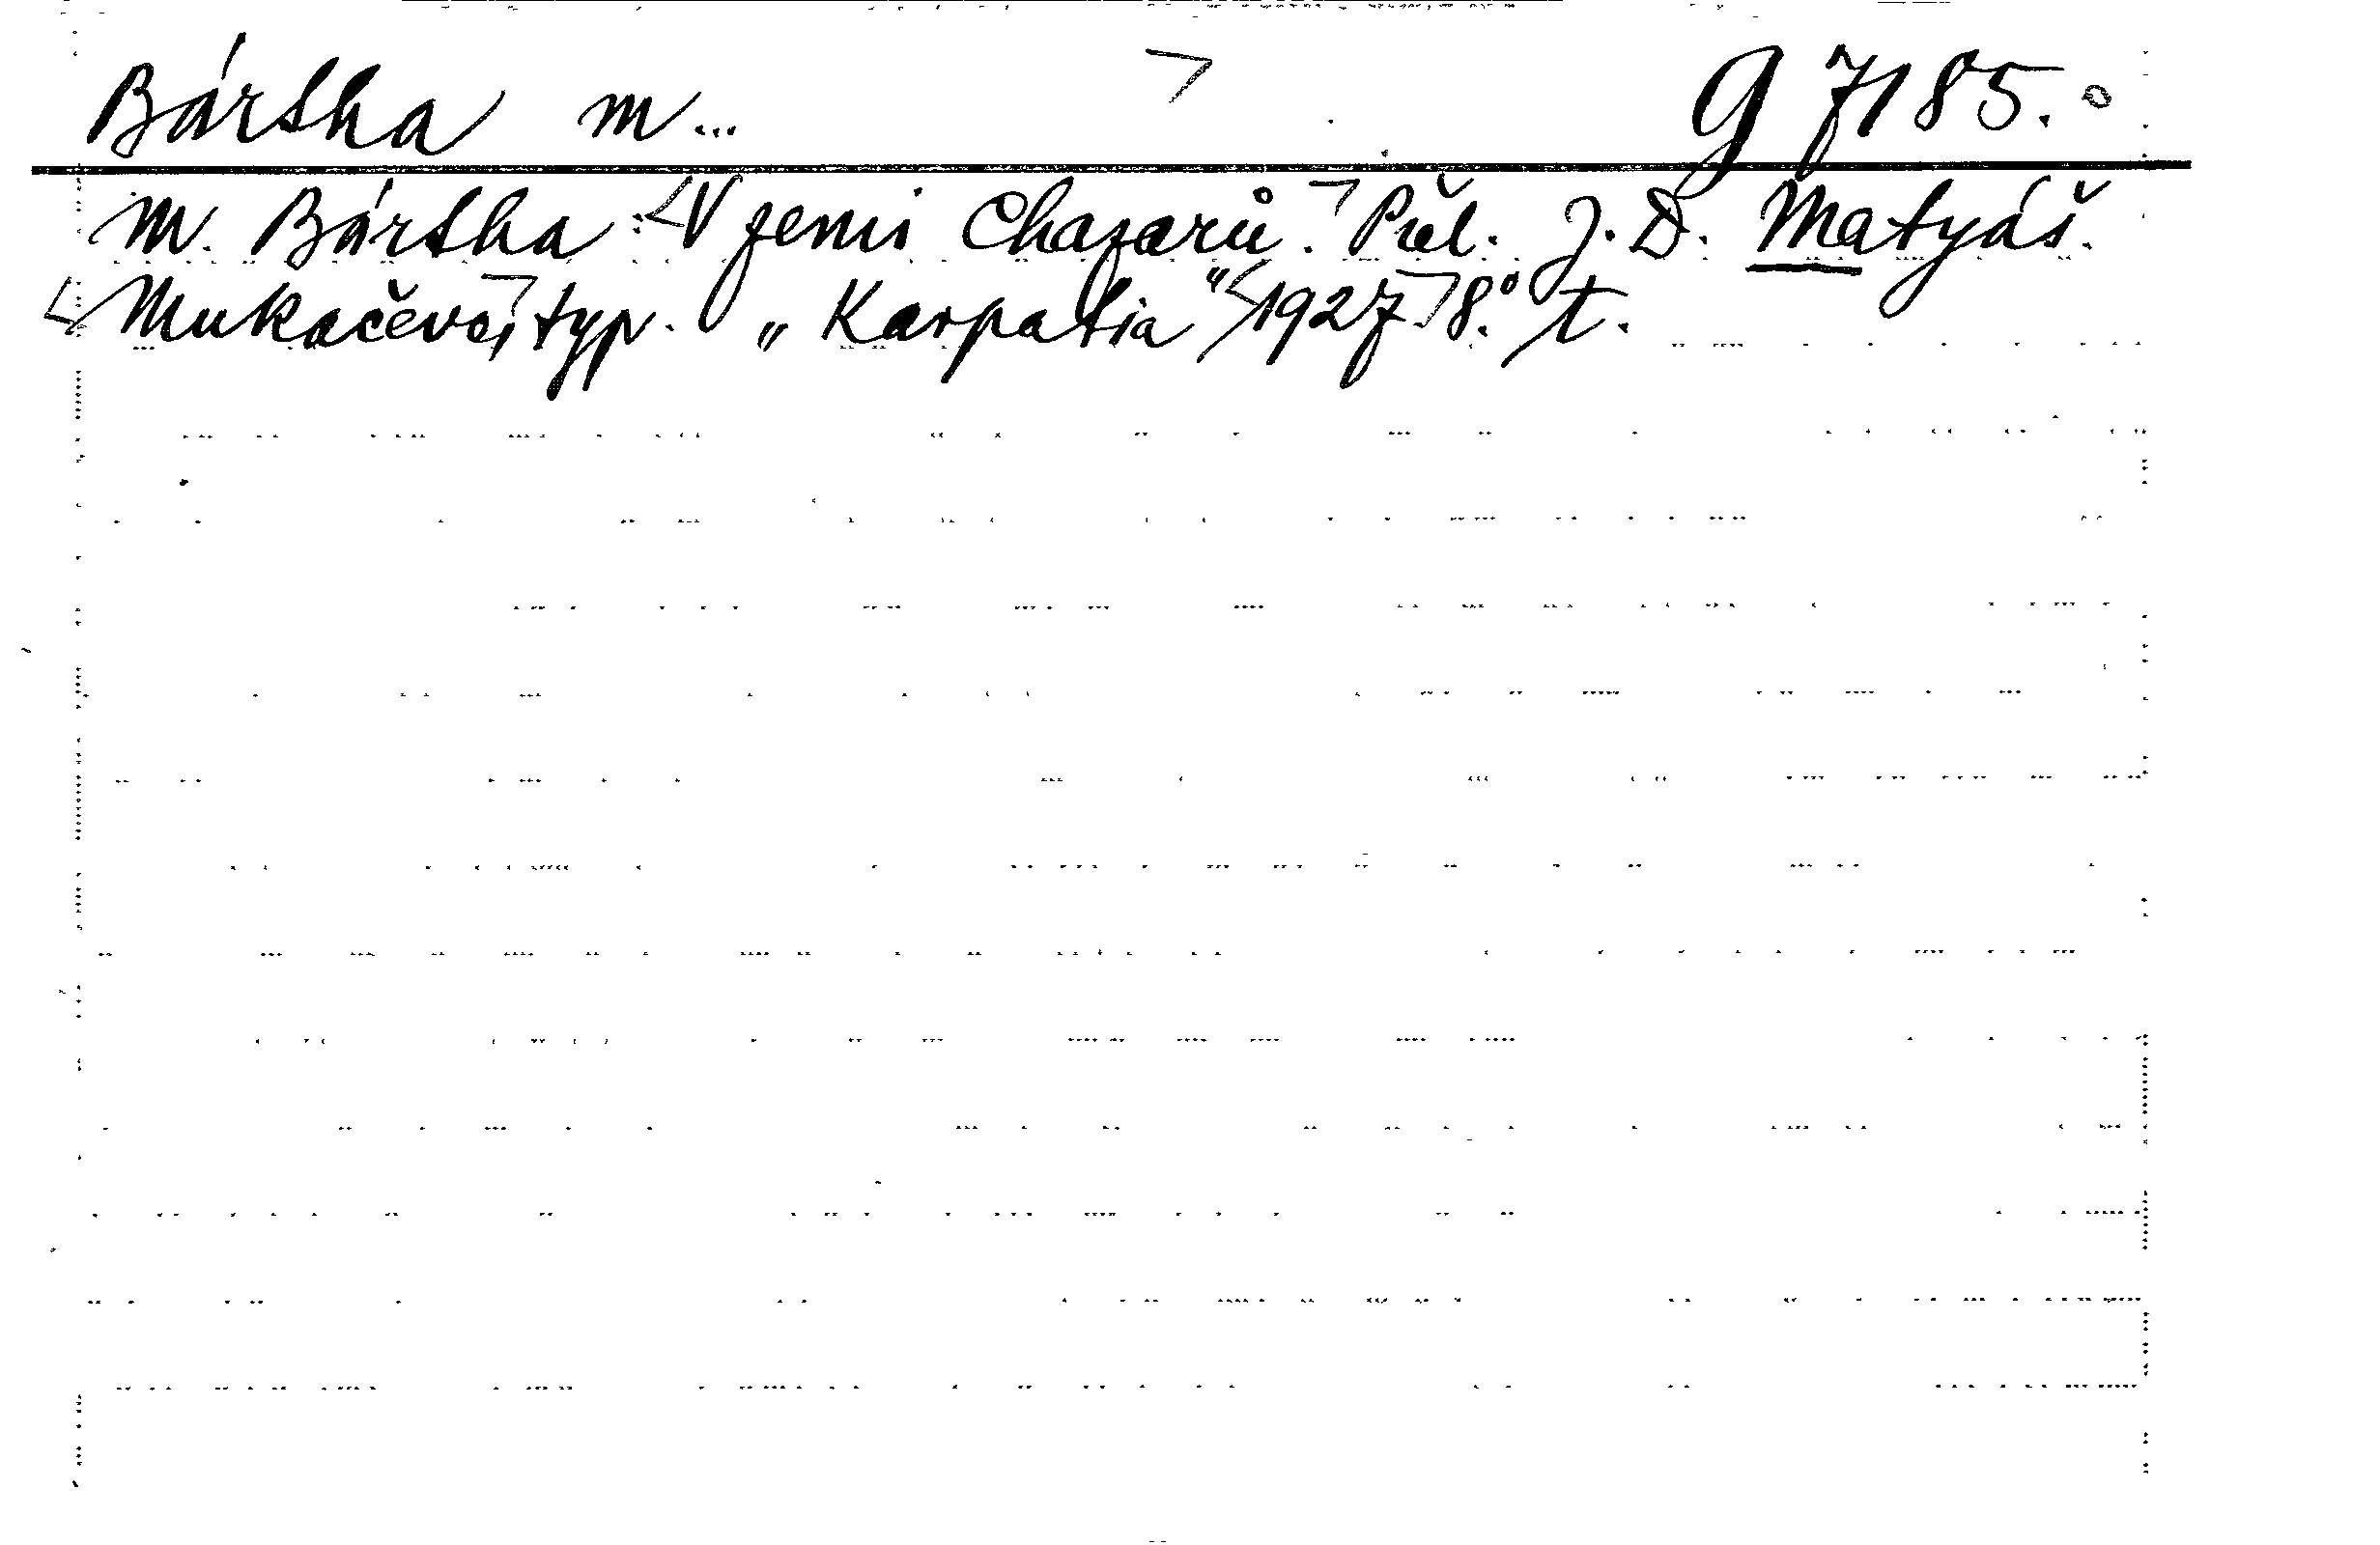 Bártha M... G 7185.
M. Bártha: V zemi Chazarů. Přel. J. D. Matyáš.
Mukačevo, typ. „Karpatia" 1927 8.° T.